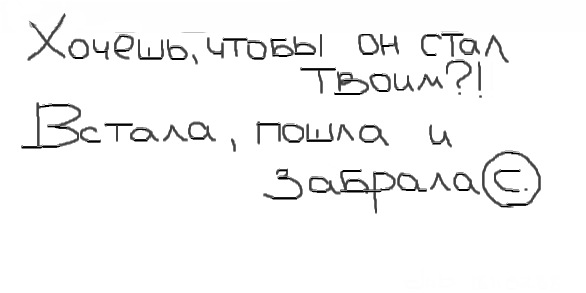 Хочешь, чтобы он стал
твоим?!
Встала, пошла и
забрала С.